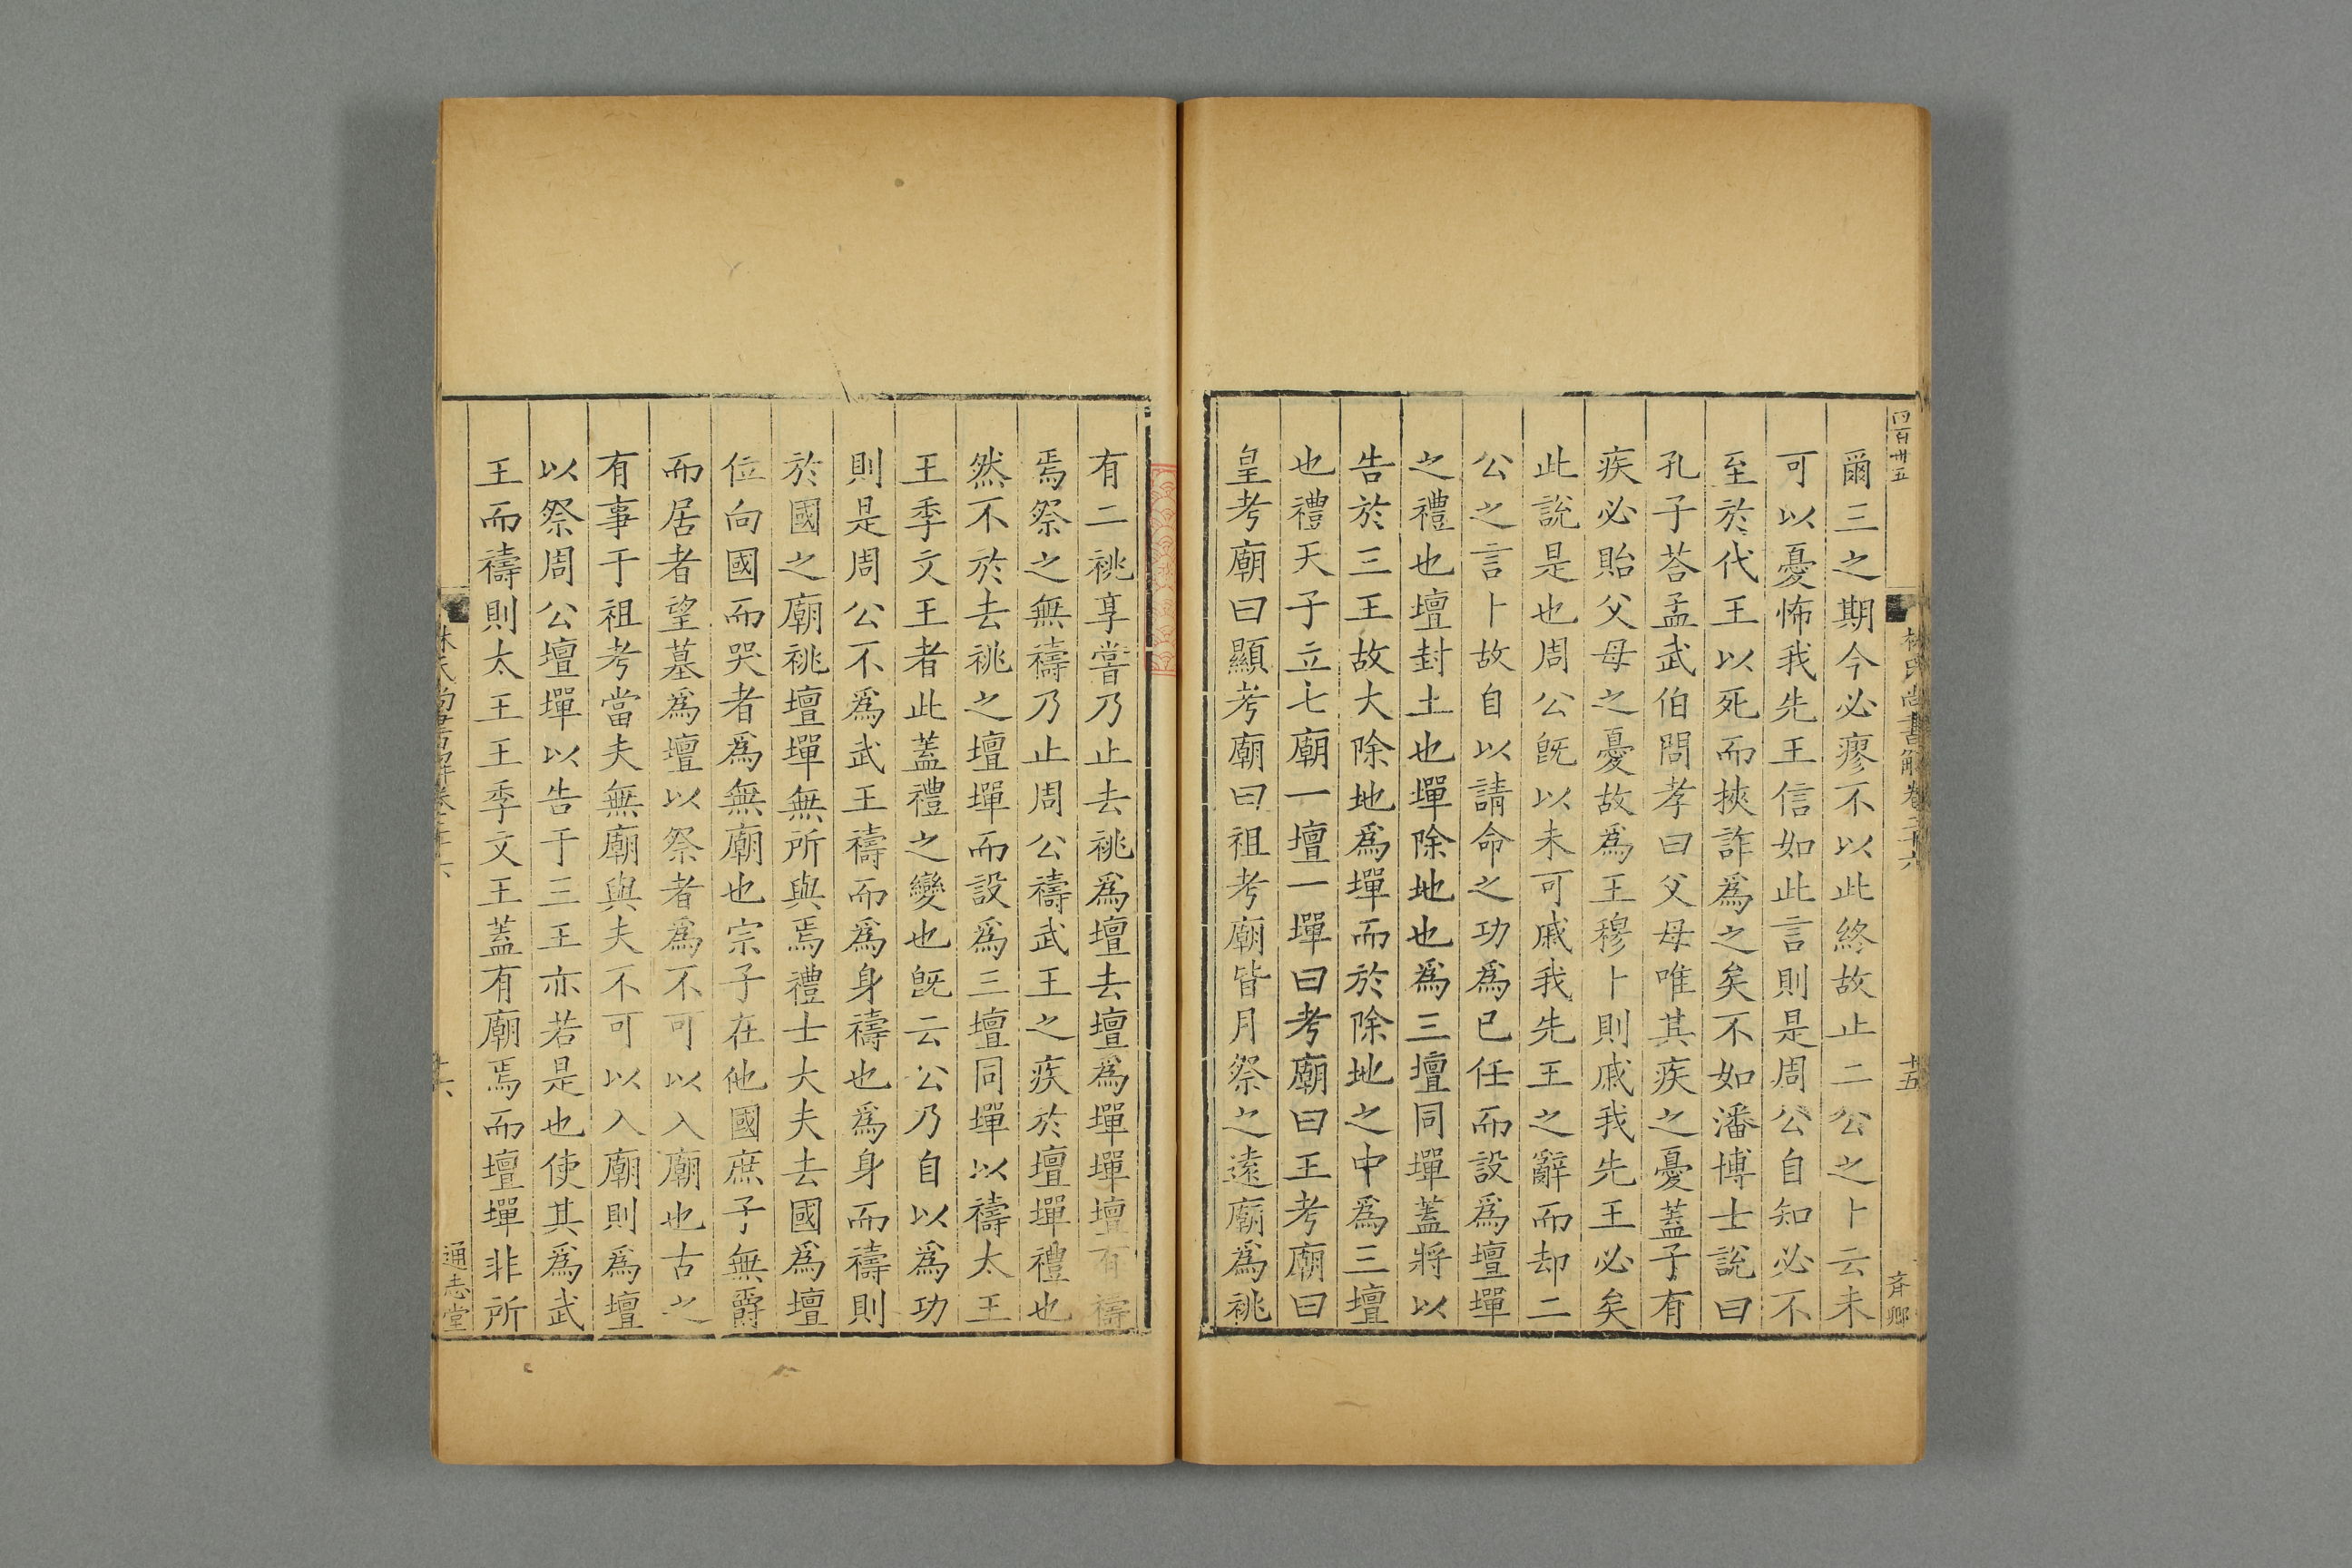 四百卅五
林氏尚書解卷二十六
十五
爾三之期今必瘳不以此終故止二公之卜云未
可以憂怖我先王信如此言則是周公自知必不
至於代王以死而挾詐爲之矣不如潘博士說曰
孔子荅孟武伯問孝曰父母唯其疾之憂蓋子有
疾必貽父母之憂故爲王穆卜則戚我先王必矣
此說是也周公旣以未可戚我先王之辭而却二
公之言卜故自以請命之功爲已任而設爲壇墠
之禮也壇封土也墠除地也爲三壇同墠蓋將以
告於三王故大除地爲墠而於除地之中爲三壇
也禮天子立七廟一壇一墠曰考廟曰王考廟曰
皇考廟曰顯考廟曰祖考廟皆月祭之遠廟爲祧
有二祧享嘗乃止去祧爲壇去壇爲墠壇墠有禱
焉祭之無禱乃止周公禱武王之疾於壇墠禮也
然不於去祧之壇墠而設爲三壇同墠以禱太王
王季文王者此蓋禮之變也旣云公乃自以爲功
則是周公不爲武王禱而爲身禱也爲身而禱則
於國之廟祧壇墠無所與焉禮士大夫去國爲壇
位向國而哭者爲無廟也宗子在他國庶子無爵
而居者望墓爲壇以祭者爲不可以入廟也古之
有事于祖考當夫無廟與夫不可以入廟則爲壇
以祭周公壇墠以告于三王亦若是也使其爲武
王而禱則太王王季文王蓋有廟焉而壇墠非所
十六
通志堂